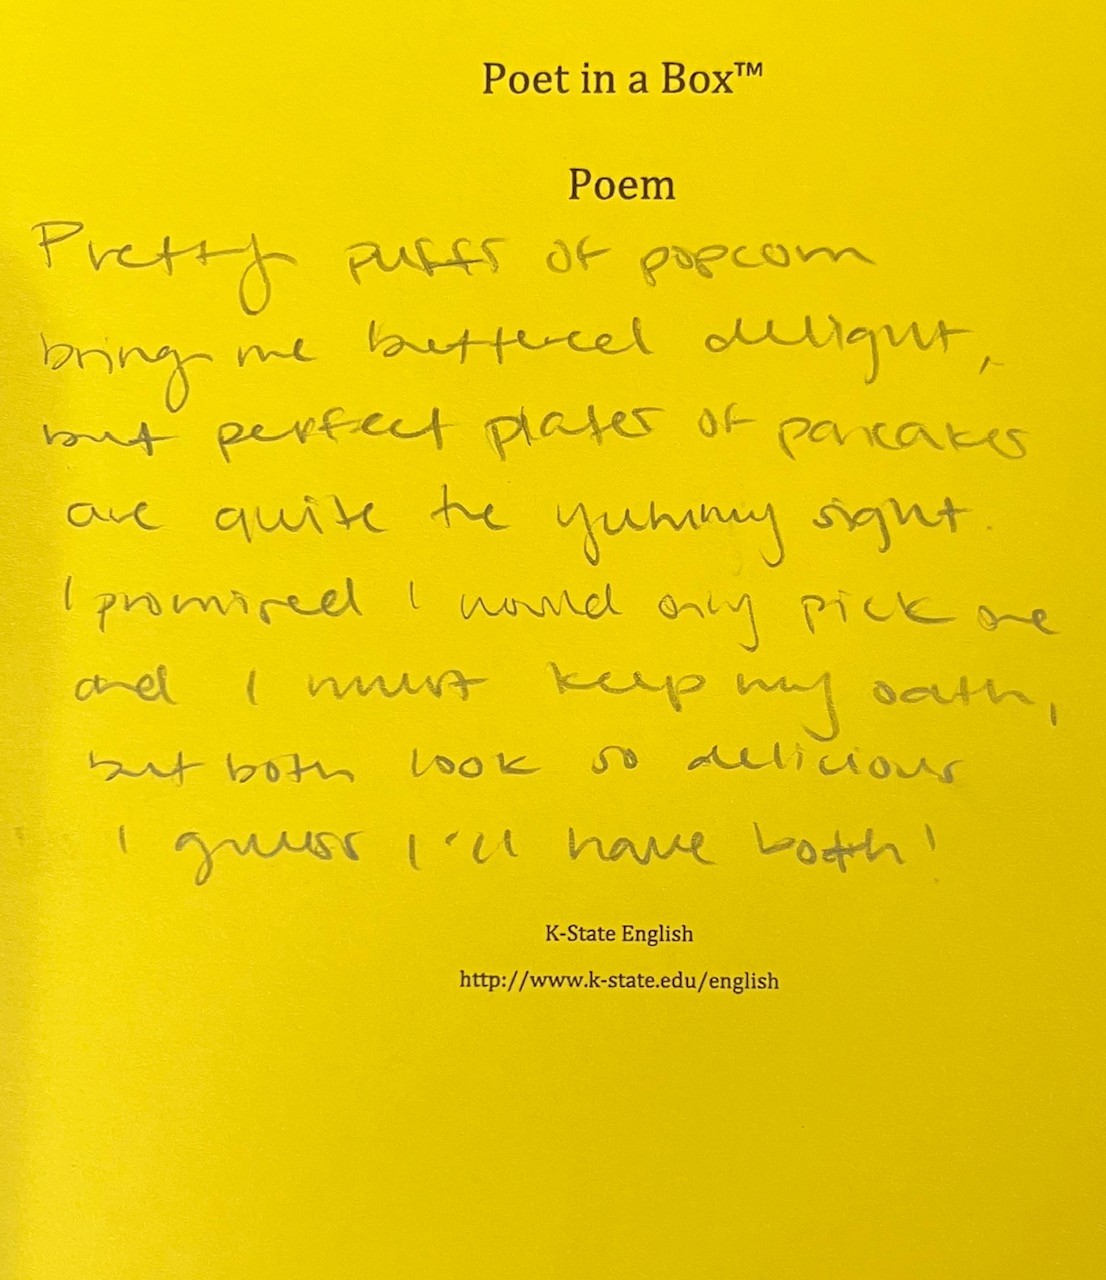 Poet in a Box™
Poem
Pretty puffs of popcorn
bring me buttered delight,
but perfect plates of pancakes
are quite the yummy sight.
I promised I would only pick one
and I must keep my oath,
but both look so delicious
I guess I'll have both!
K-State English
http://www.k-state.edu/english